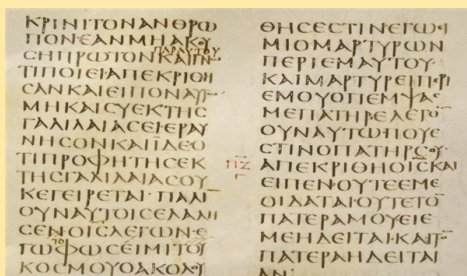 ΚΡΙΝΙΤΟΝΑΝΘΡⲰ
ΠΟΝΕΑΝΜΗΑΚΟΥ
ΠΑΡΑΥΤΟΥ
ϹΗΠΡⲰΤΟΝΚΑΙΓΝ
ΤΙΠΟΙΕΙΑΠΕΚΡΙΘΗ
ϹΑΝΚΑΙΕΙΠΟΝΑΥΤ
ΜΗΚΑΙϹΥΕΚΤΗϹ
ΓΑΛΙΛΑΙΑϹΕΙΕΡΑΥ
ΝΗϹΟΝΚΑΙΪΔΕΟ
ΤΙΠΡΟΦΗΤΗϹΕΚ
ΤΗϹΓΑΛΙΛΑΙΑϹΟΥ
ΚΕΓΕΙΡΕΤΑΙ·ΠΑΛΙ
ΟΥΝΑΥΤΟΙϹΕΛΑΛΙ
ϹΕΝΟΙϹΛΕΓⲰΝΕ
ΤΟ
ΓⲰΦⲰϹΕΙΜΙΤΟΥ
ΚΟϹΜΟΥΟΑΚΟΛΟΥ
ΠΖ
Γ
ΘΗϹΕϹΤΙΝΕΓⲰΙ
ΜΙΟΜΑΡΤΥΡⲰΝ
ΠΕΡΙΕΜΑΥΤΟΥ·
ΚΑΙΜΑΡΤΥΡΕΙΠΕΡΙ
ΕΜΟΥΟΠΕΜΨΑϹ
ΜΕΠΑΤΗΡΕΛΕΓΟ
ΟΥΝΑΥΤⲰΠΟΥΕ
ϹΤΙΝΟΠΑΤΗΡϹΟΥ
ΑΠΕΚΡΙΘΗΟΙϹΚΑΙ
ΕΙΠΕΝ·ΟΥΤΕΕΜΕ
ΟΙΔΑΤΑΙΟΥΤΕΤΟ
ΠΑΤΕΡΑΜΟΥΕΙΕ
ΜΕΗΔΕΙΤΑΙ·ΚΑΙΤ
ΠΑΤΕΡΑΗΔΕΙΤΑΙ
ΑΝ